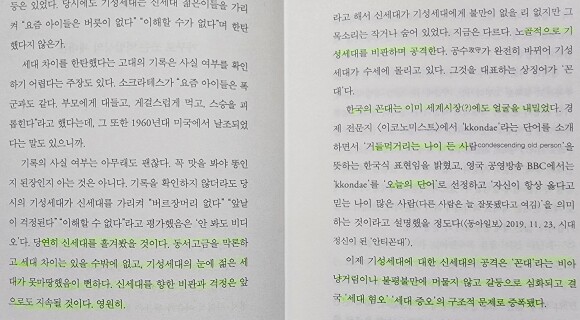 등은 있었다. 당시에도 기성세대는 신세대 젊은이들을 가리
켜 “요즘 아이들은 버릇이 없다” “이해할 수가 없다”며 한탄
했다지 않은가.
세대 차이를 한탄했다는 고대의 기록은 사실 여부를 확인
하기 어렵다는 주장도 있다. 소크라테스가 “요즘 아이들은 폭
군과도 같다. 부모에게 대들고, 게걸스럽게 먹고, 스승을 괴
롭힌다”라고 했다는데, 그 또한 1960년대 미국에서 날조되었
다는 말도 있으니까.
기록의 사실 여부는 아무래도 괜찮다. 꼭 맛을 봐야 똥인
지 된장인지 아는 것은 아니다. 기록을 확인하지 않더라도 당
시의 기성세대가 신세대를 가리켜 “버르장머리 없다” “앞날
이 걱정된다” “이해할 수 없다”라고 평가했음은 ‘안 봐도 비디
오’다. 당연히 신세대를 흘겨봤을 것이다. 동서고금을 막론하
고 세대 차이는 있을 수밖에 없고, 기성세대의 눈에 젊은 세
대가 못마땅했음이 뻔하다. 신세대를 향한 비판과 걱정은 앞
으로도 지속될 것이다. 영원히.
라고 해서 신세대가 기성세대에게 불만이 없을 리 없지만 그
목소리는 작거나 숨어 있었다. 지금은 다르다. 노골적으로 기
성세대를 비판하며 공격한다. 공수攻守가 완전히 바뀌어 기성
세대가 수세에 몰리고 있다. 그것을 대표하는 상징어가 ‘꼰
대’다.
한국의 꼰대는 이미 세계시장(?)에도 얼굴을 내밀었다. 경
제 전문지 〈이코노미스트〉에서 ‘kkondae’라는 단어를 소개
하면서 ‘거들먹거리는 나이 든 사람condescending old person’을
뜻하는 한국식 표현임을 밝혔고, 영국 공영방송 BBC에서는
‘kkondae’를 ‘오늘의 단어’로 선정하고 ‘자신이 항상 옳다고
믿는 나이 많은 사람(다른 사람은 늘 잘못됐다고 여김)’을 의미
하는 것이라고 설명했을 정도다(〈동아일보〉 2019. 11. 23, 시대
정신이 된 ‘안티꼰대’).
이제 기성세대에 대한 신세대의 공격은 ‘꼰대’라는 비아
냥거림이나 불평불만에 머물지 않고 갈등으로 심화되고 결
국 ‘세대 혐오’ ‘세대 증오’의 구조적 문제로 증폭됐다.